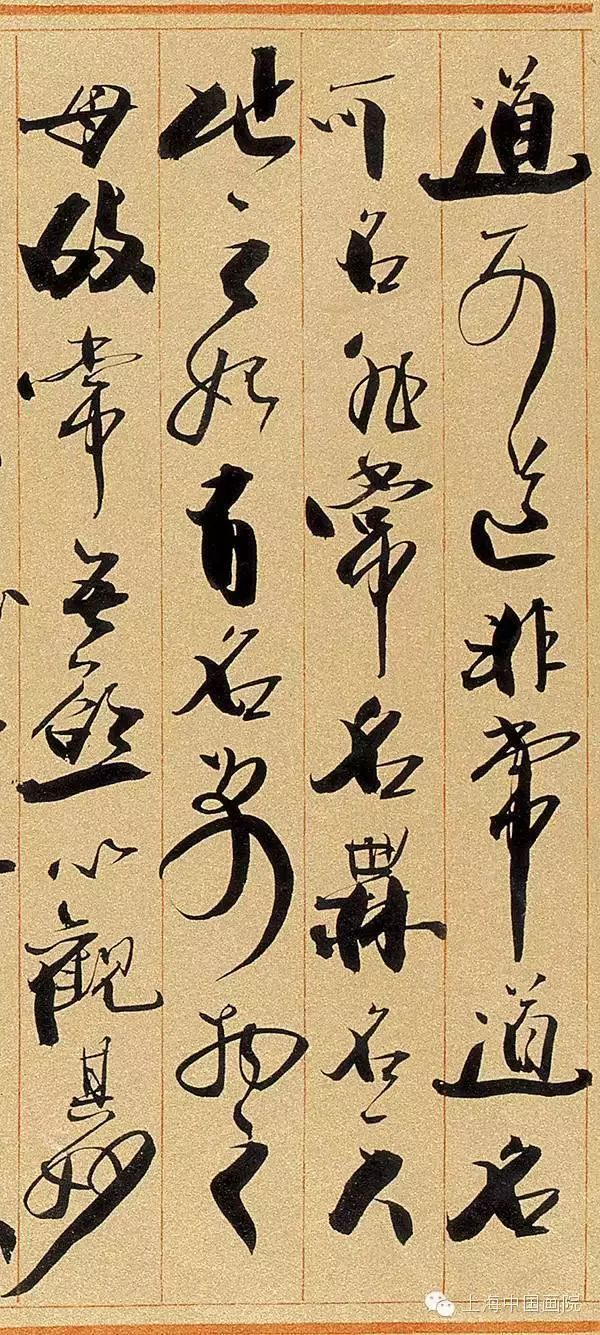 道可道非常道名
可名非常名無名天
地之始有名萬物之
母故常無慾以觀其妙
上海中国画院